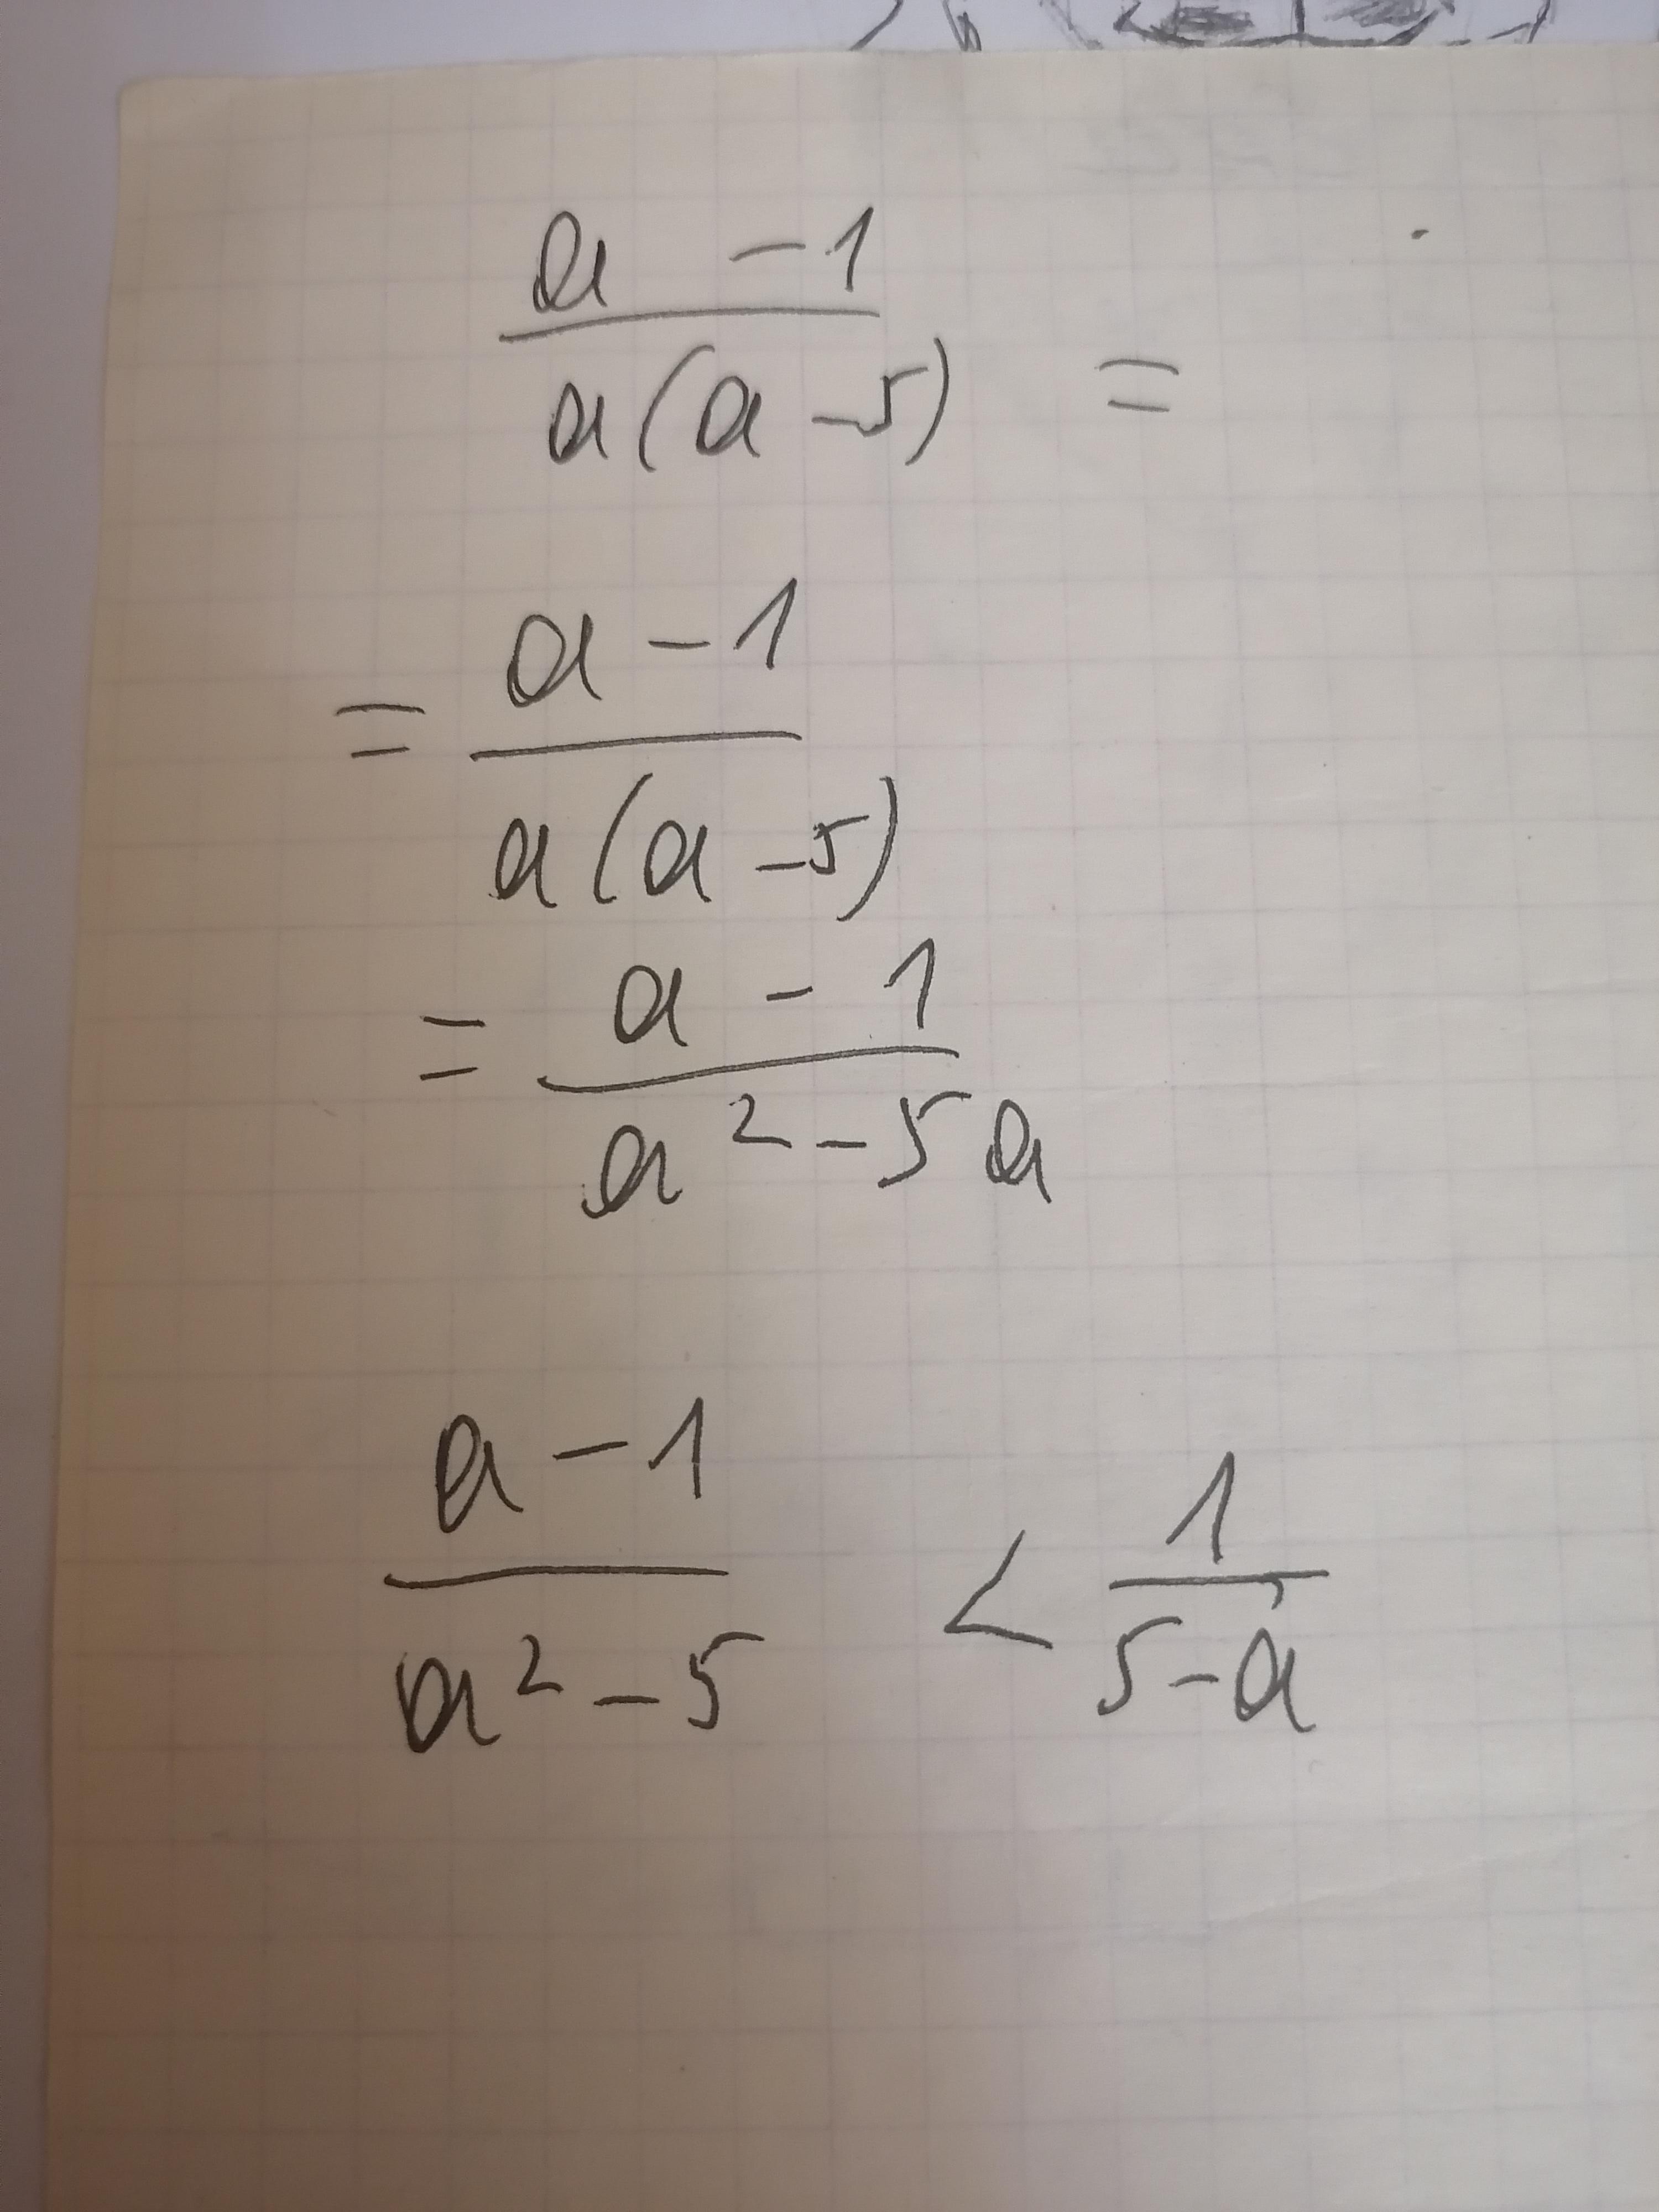 a - 1
a(a - 5) =
= a - 1
a(a - 5)
= a - 1
a² - 5a
a - 1 < 1
a² - 5 5 - a